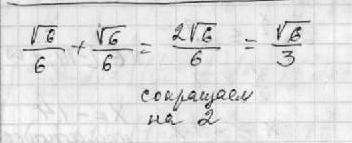 √6/6 + √6/6 = 2√6/6 = √6/3
сокращаем
на 2